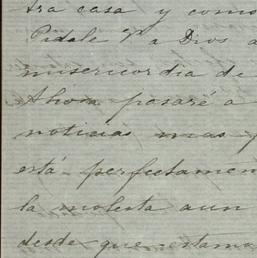 tra casa y como
Pidale Va a Dios a
misericordia de
Ahora pasaré a
noticias mas
está perfectamen
la molesta aun
desde que estamo